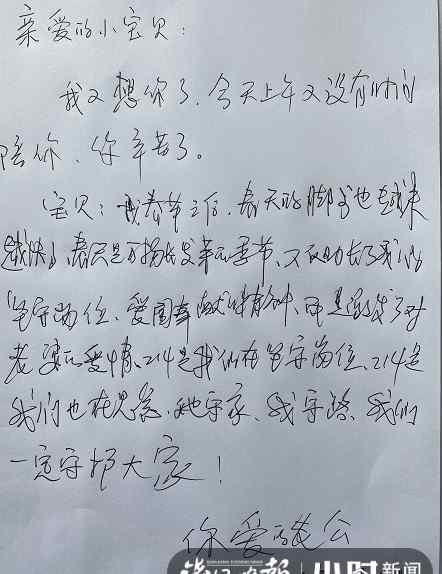 亲爱的小宝贝：
我又想你了，今天上午又没有时间
陪你，你辛苦了。
宝贝：春节之后，春天的脚步也越来
越快，春天是万物生发的季节，不仅助长了我们
坚守岗位、爱国奉献精神，更是对
老婆的爱情。214是我们在坚守岗位、214是
我们也在思念，她守家、我守路，我们
一定守护大家！
你爱老公
钱江晚报 小时新闻